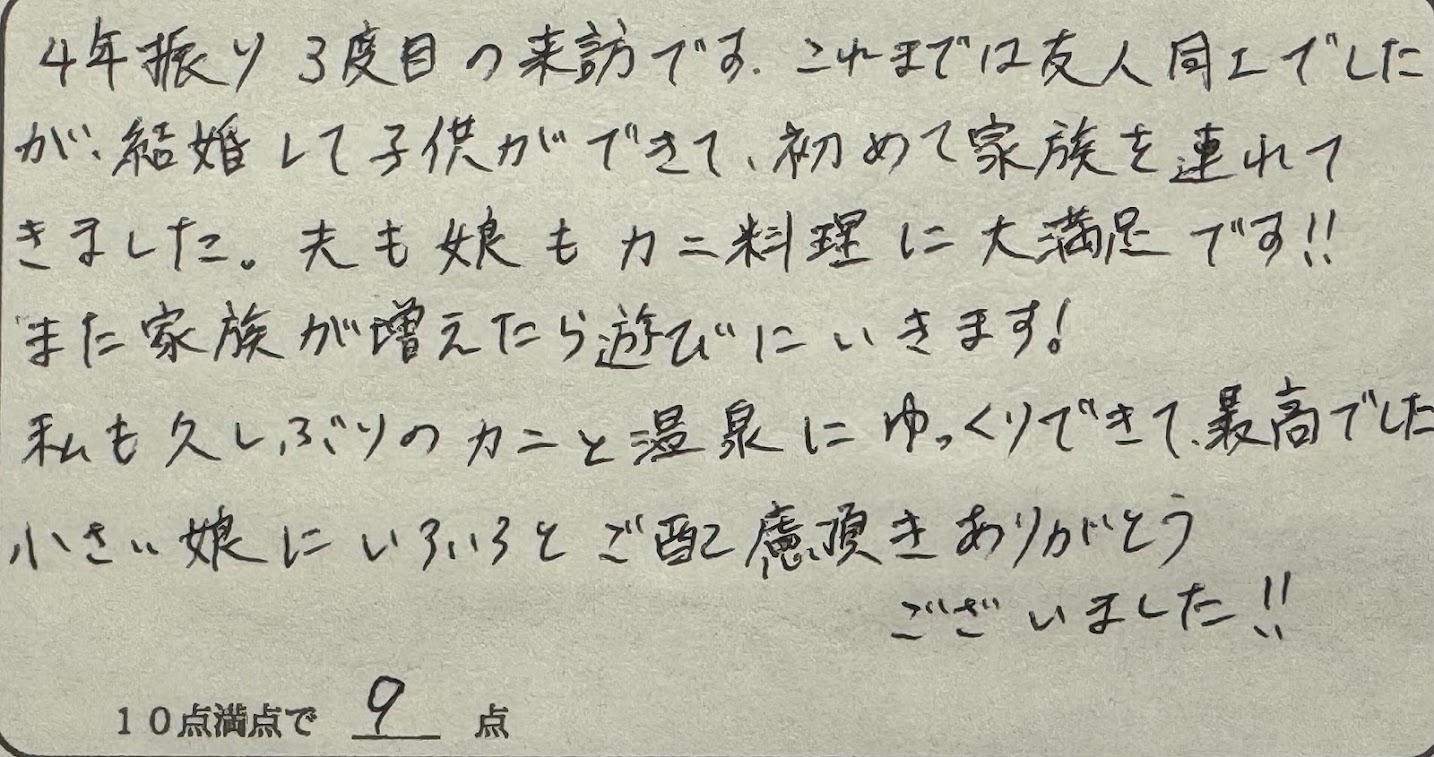 4年振り3度目の来訪です。これまでは友人同士でした
が、結婚して子供ができて、初めて家族を連れて
きました。夫も娘もカニ料理に大満足です!!
また家族が増えたら遊びにいきます!
私も久しぶりのカニと温泉にゆっくりできて、最高でした
小さい娘にいろいろとご配慮頂きありがとう
ございました!!
10点満点で 9 点